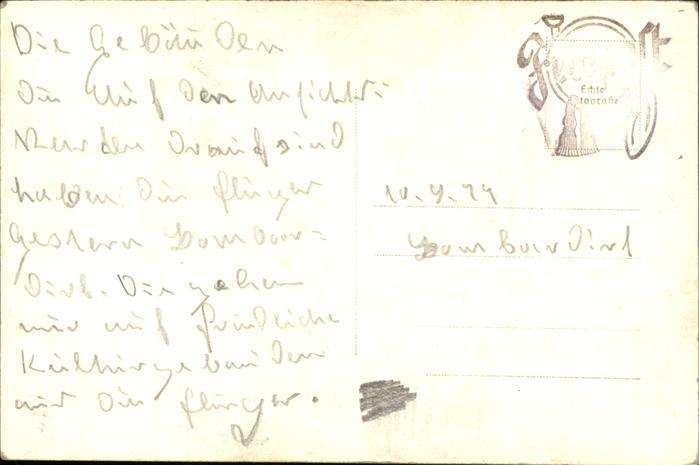 Die Gebäuden
die auf den Ansichts-
Karten drauf sind
haben die flieger
gestern Bombar-
dirt. Die gehen
nur auf friedliche
Kulturgebauden
mit die flieger.
Echte
10.9.44
Bombardirt